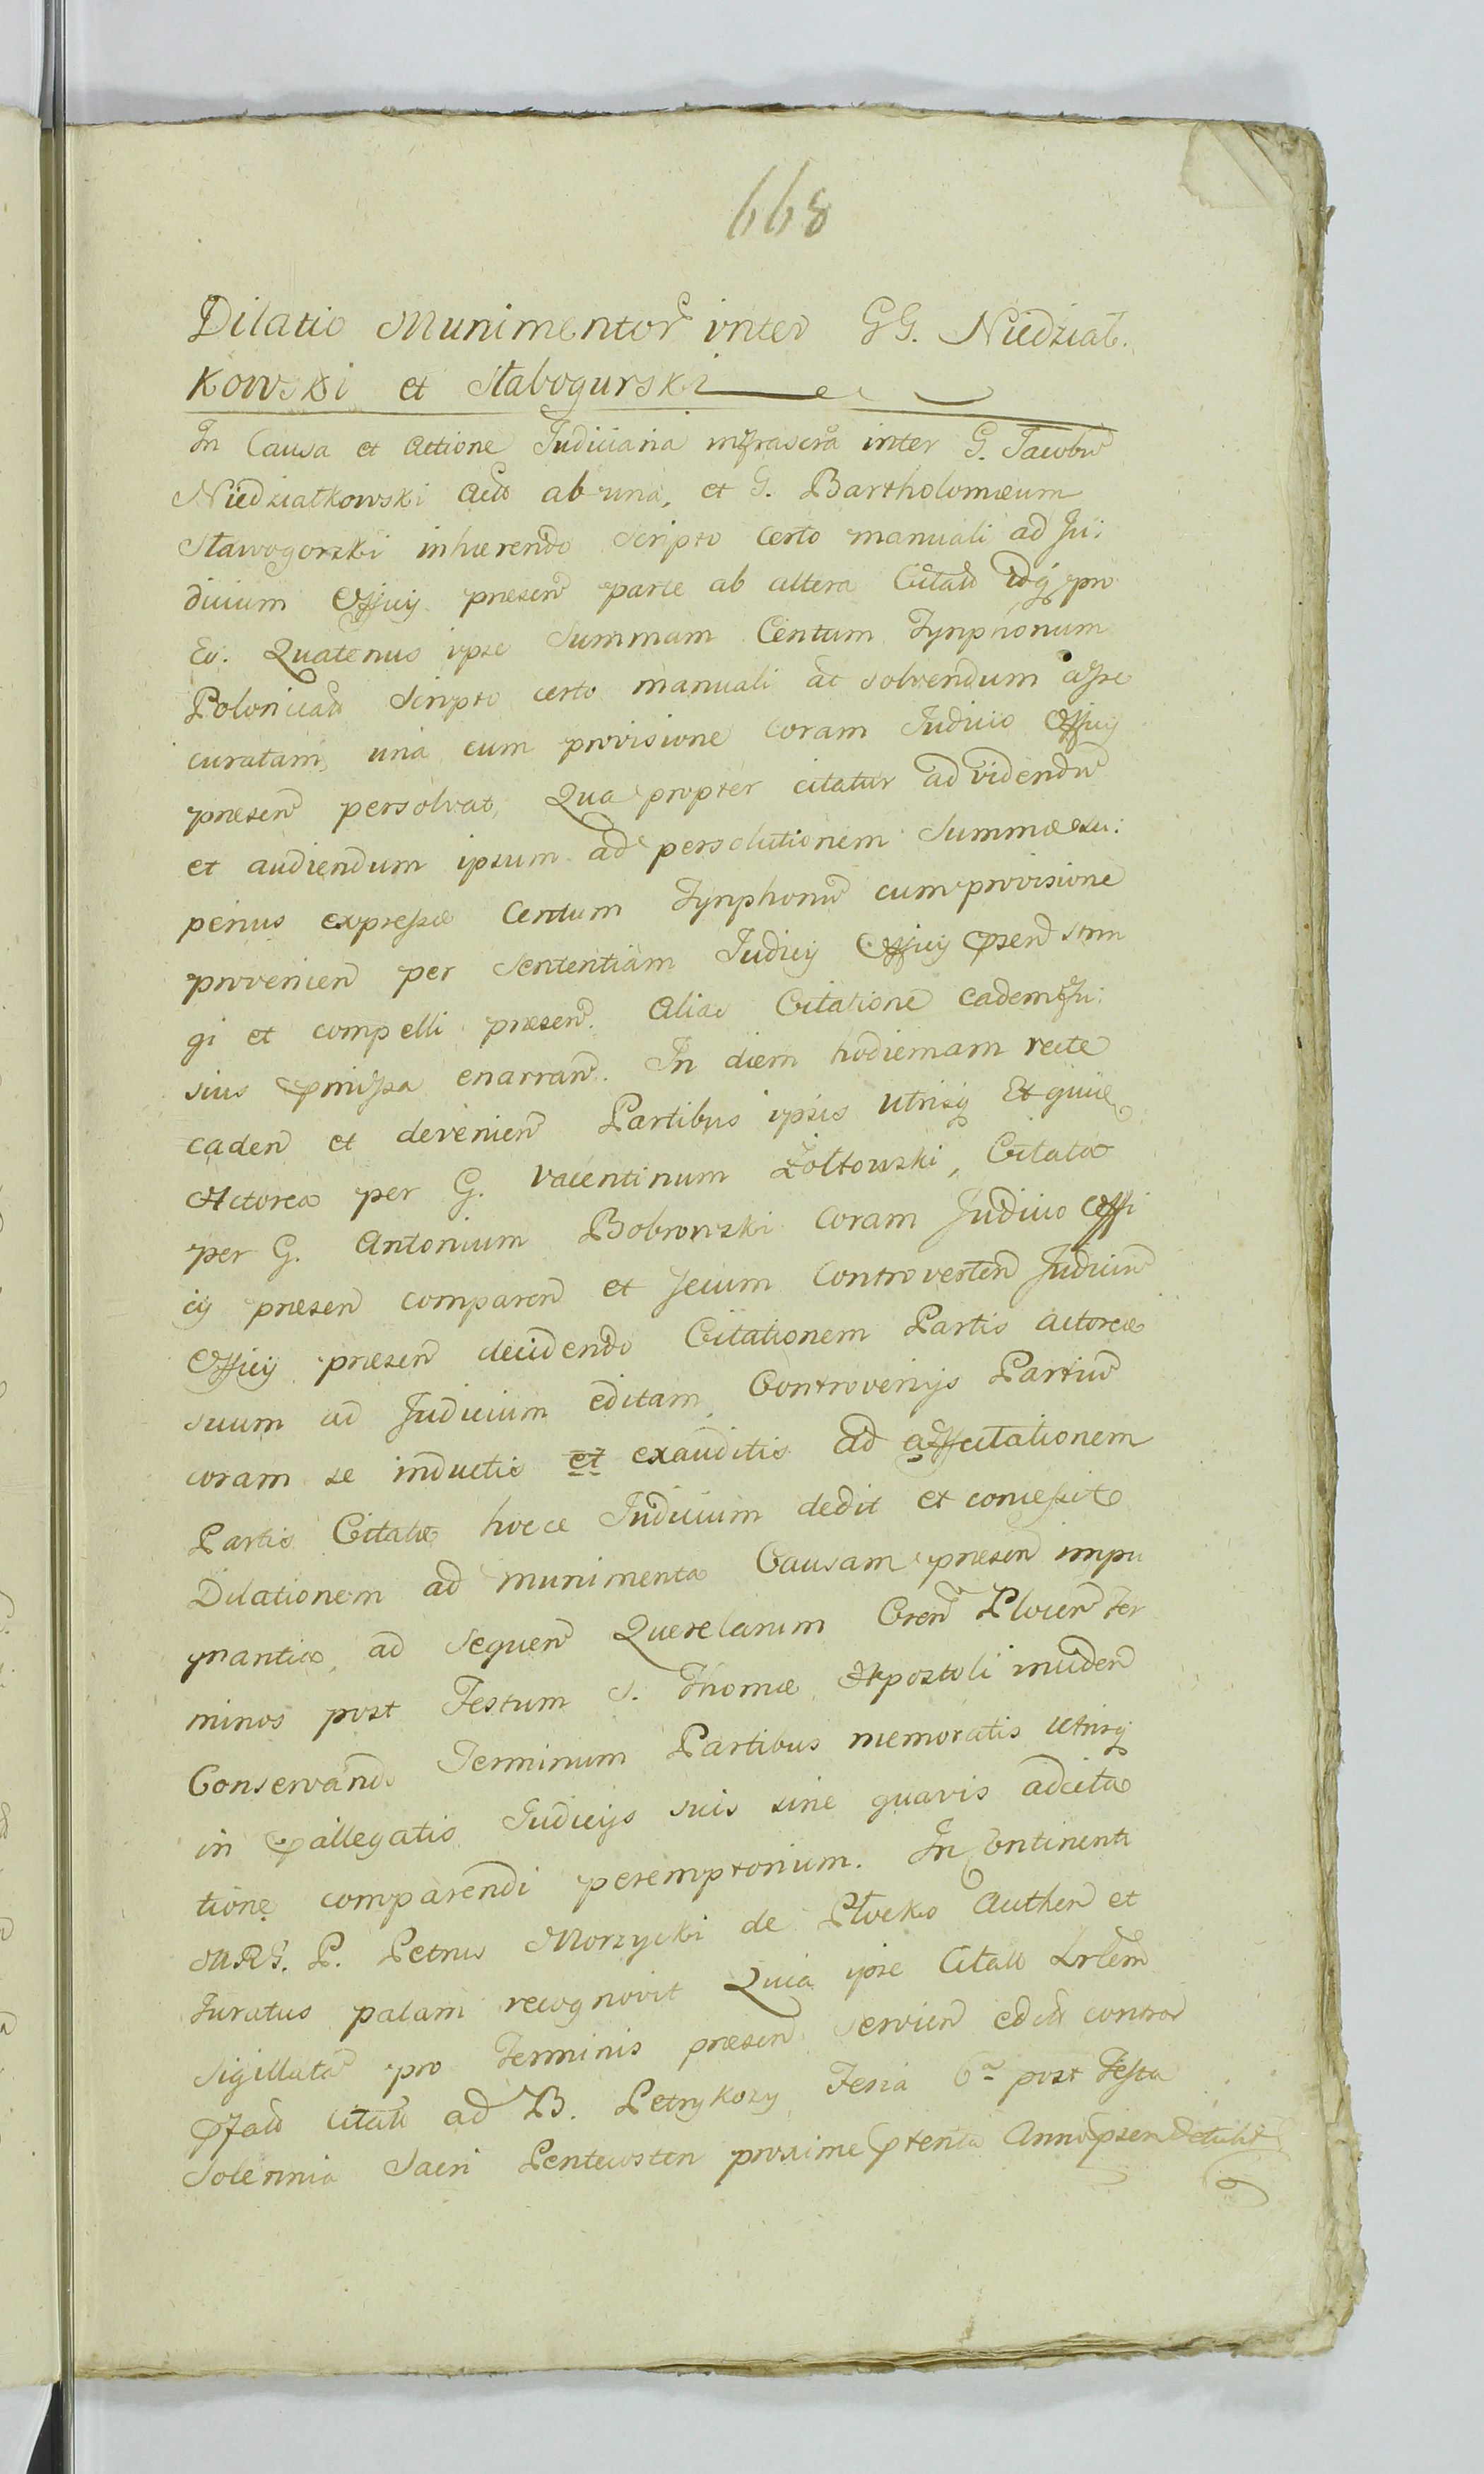 668
Dilatio Munimentor inter GG. Niedział.
kowski et Stabogurski
In Causa et Actione Judiciaria infrascra inter G. Jacobu
Niedziałkowski Act ab una, et G. Bartholomæum
Stawogorski inhærendo Scripto certo manuali ad Ju:
dicium Officy præsen parte ab altera Citatt idq pro
Eo. Quatenus ipse Summam Centum Tynphonum
Polonicatt Scripto certo manuali at solvendum asse
curatam, una cum provisione Coram Judicio Officy
præsen persolvat, Qua propter citatur ad videndu
et audiendum ipsum ad persolutionem Summæ su:
perius expressæ Centum Tynphonu cum provisione
provenien per Sententiam Judicy Officy psen strin
gi et compelli præsen. Alias Citatione eadem fu:
sius pmissa enarran. In diem hodiernam recte
caden et devenien Partibus ipsis utrisq Et quide
Actorea per G. Valentinum Żołtowski, Citata
per G. Antonium Bobrowski Coram Judicio Offi
cy præsen comparen et secum Controverten Judiciu
Officy præsen decidendo Citationem Partis actoreæ
suum ad Judicium editam, Controversys Partiu
coram se inductis et exauditis ad affectationem
Partis Citatæ hocce Judicium dedit et concessit
Dilationem ad munimenta Causam præsen impu
gnantia, ad Sequen Querelarum Cren Plocen Ter
minos post Festum S. Thomæ Apostoli inciden
Conservando Terminum Partibus memoratis Utrisq
in pallegatis Judicys suis sine quavis adcita
tione comparendi peremptorium. In Continenti
MRG. P. Petrus Morzycki de Płocko Authen et
Juratus palam recognovit Quia ipse Citatt Lrlem
Sigillatā pro Terminis præsen servien edit contra
pfatt citatt ad B. Petrykozy Feria 6ta post Festa
Solennia Sacri Pentecosten proxime pterita Anni psen detulit